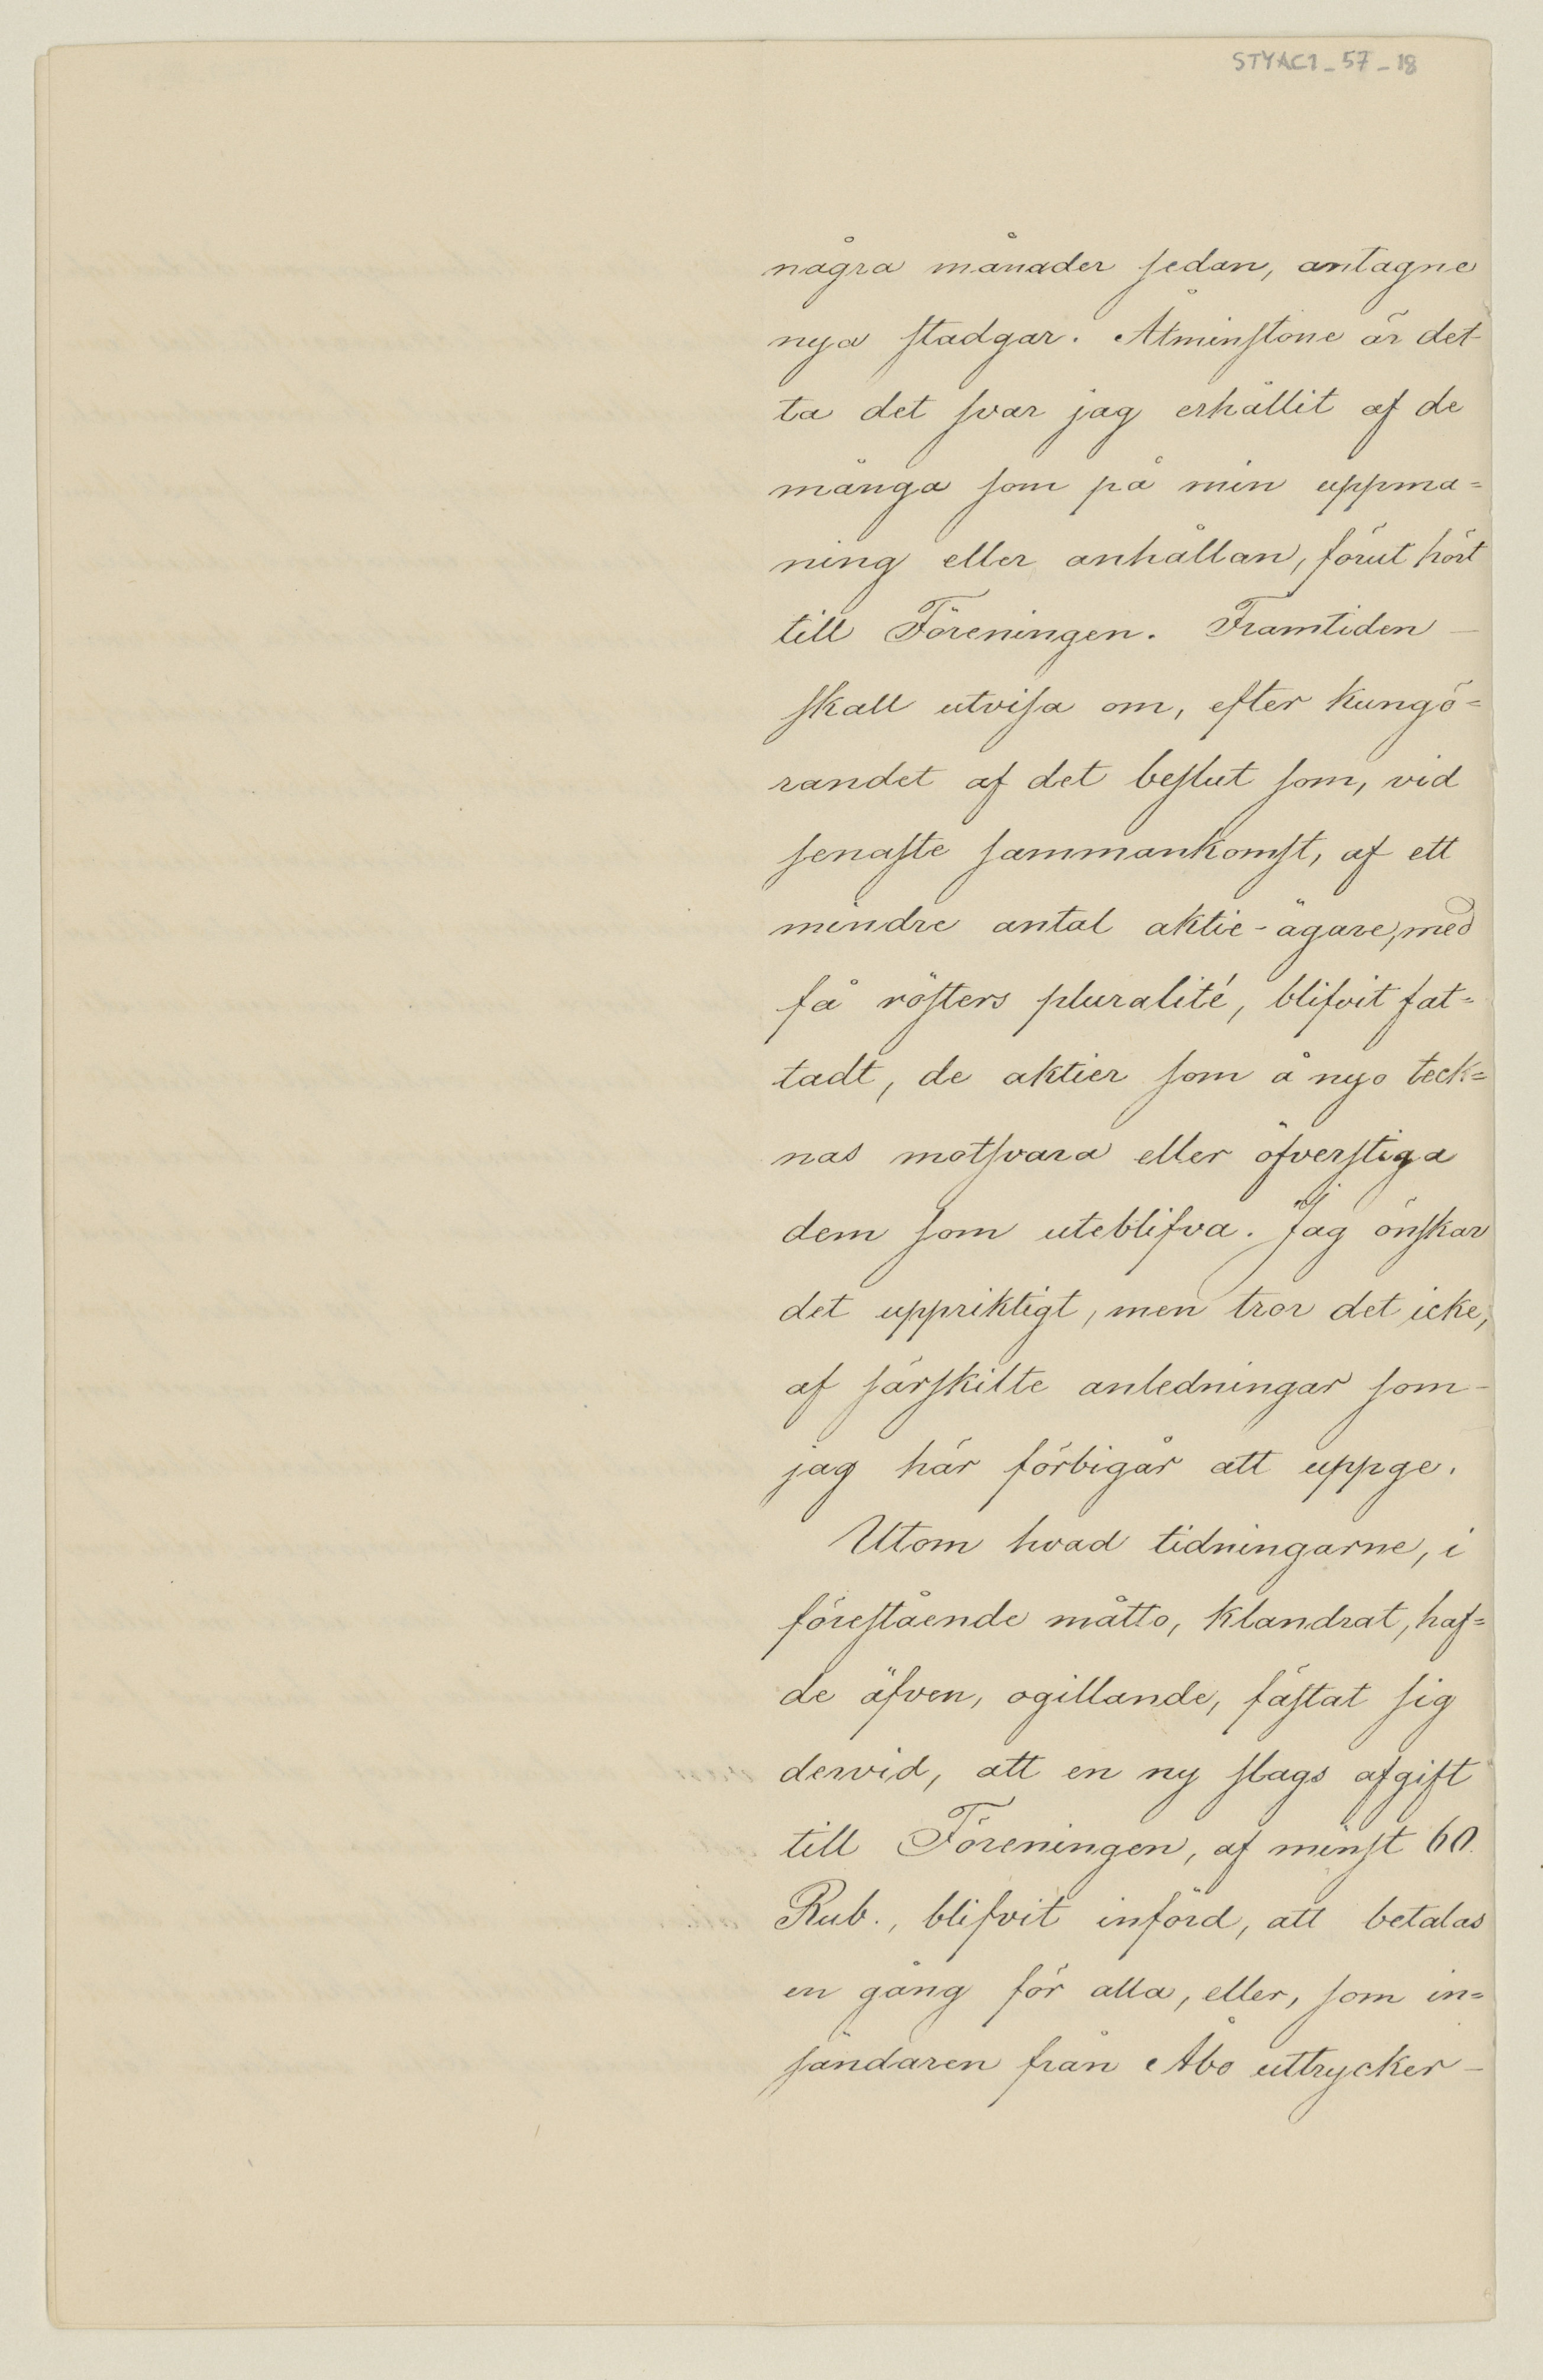 STYAC1_57_18
några månader sedan, antagne
nya stadgar. Åtminstone är det
ta det svar jag erhållit af de
många som på min uppma=
ning eller anhållan, förut hört
till Föreningen. Framtiden –
skall utvisa om, efter kungö=
randet af det beslut som, vid
senaste sammankomst, af ett
mindre antal aktie-ägare, med
få rösters pluralité, blifvit fat=
tadt, de aktier som å nyo teck=
nas motsvara eller öfverstiga
dem som uteblifva. Jag önskar
det uppriktigt, men tror det icke,
af särskilte anledningar som –
jag här förbigår att uppge.
Utom hvad tidningarne, i
förestående måtto, klandrat, haf=
de äfven, ogillande, fästat sig
dervid, att en ny slags afgift
till Föreningen, af minst 60.
Rub., blifvit införd, att betalas
en gång för alla, eller, som in=
sändaren från Åbo uttrycker –